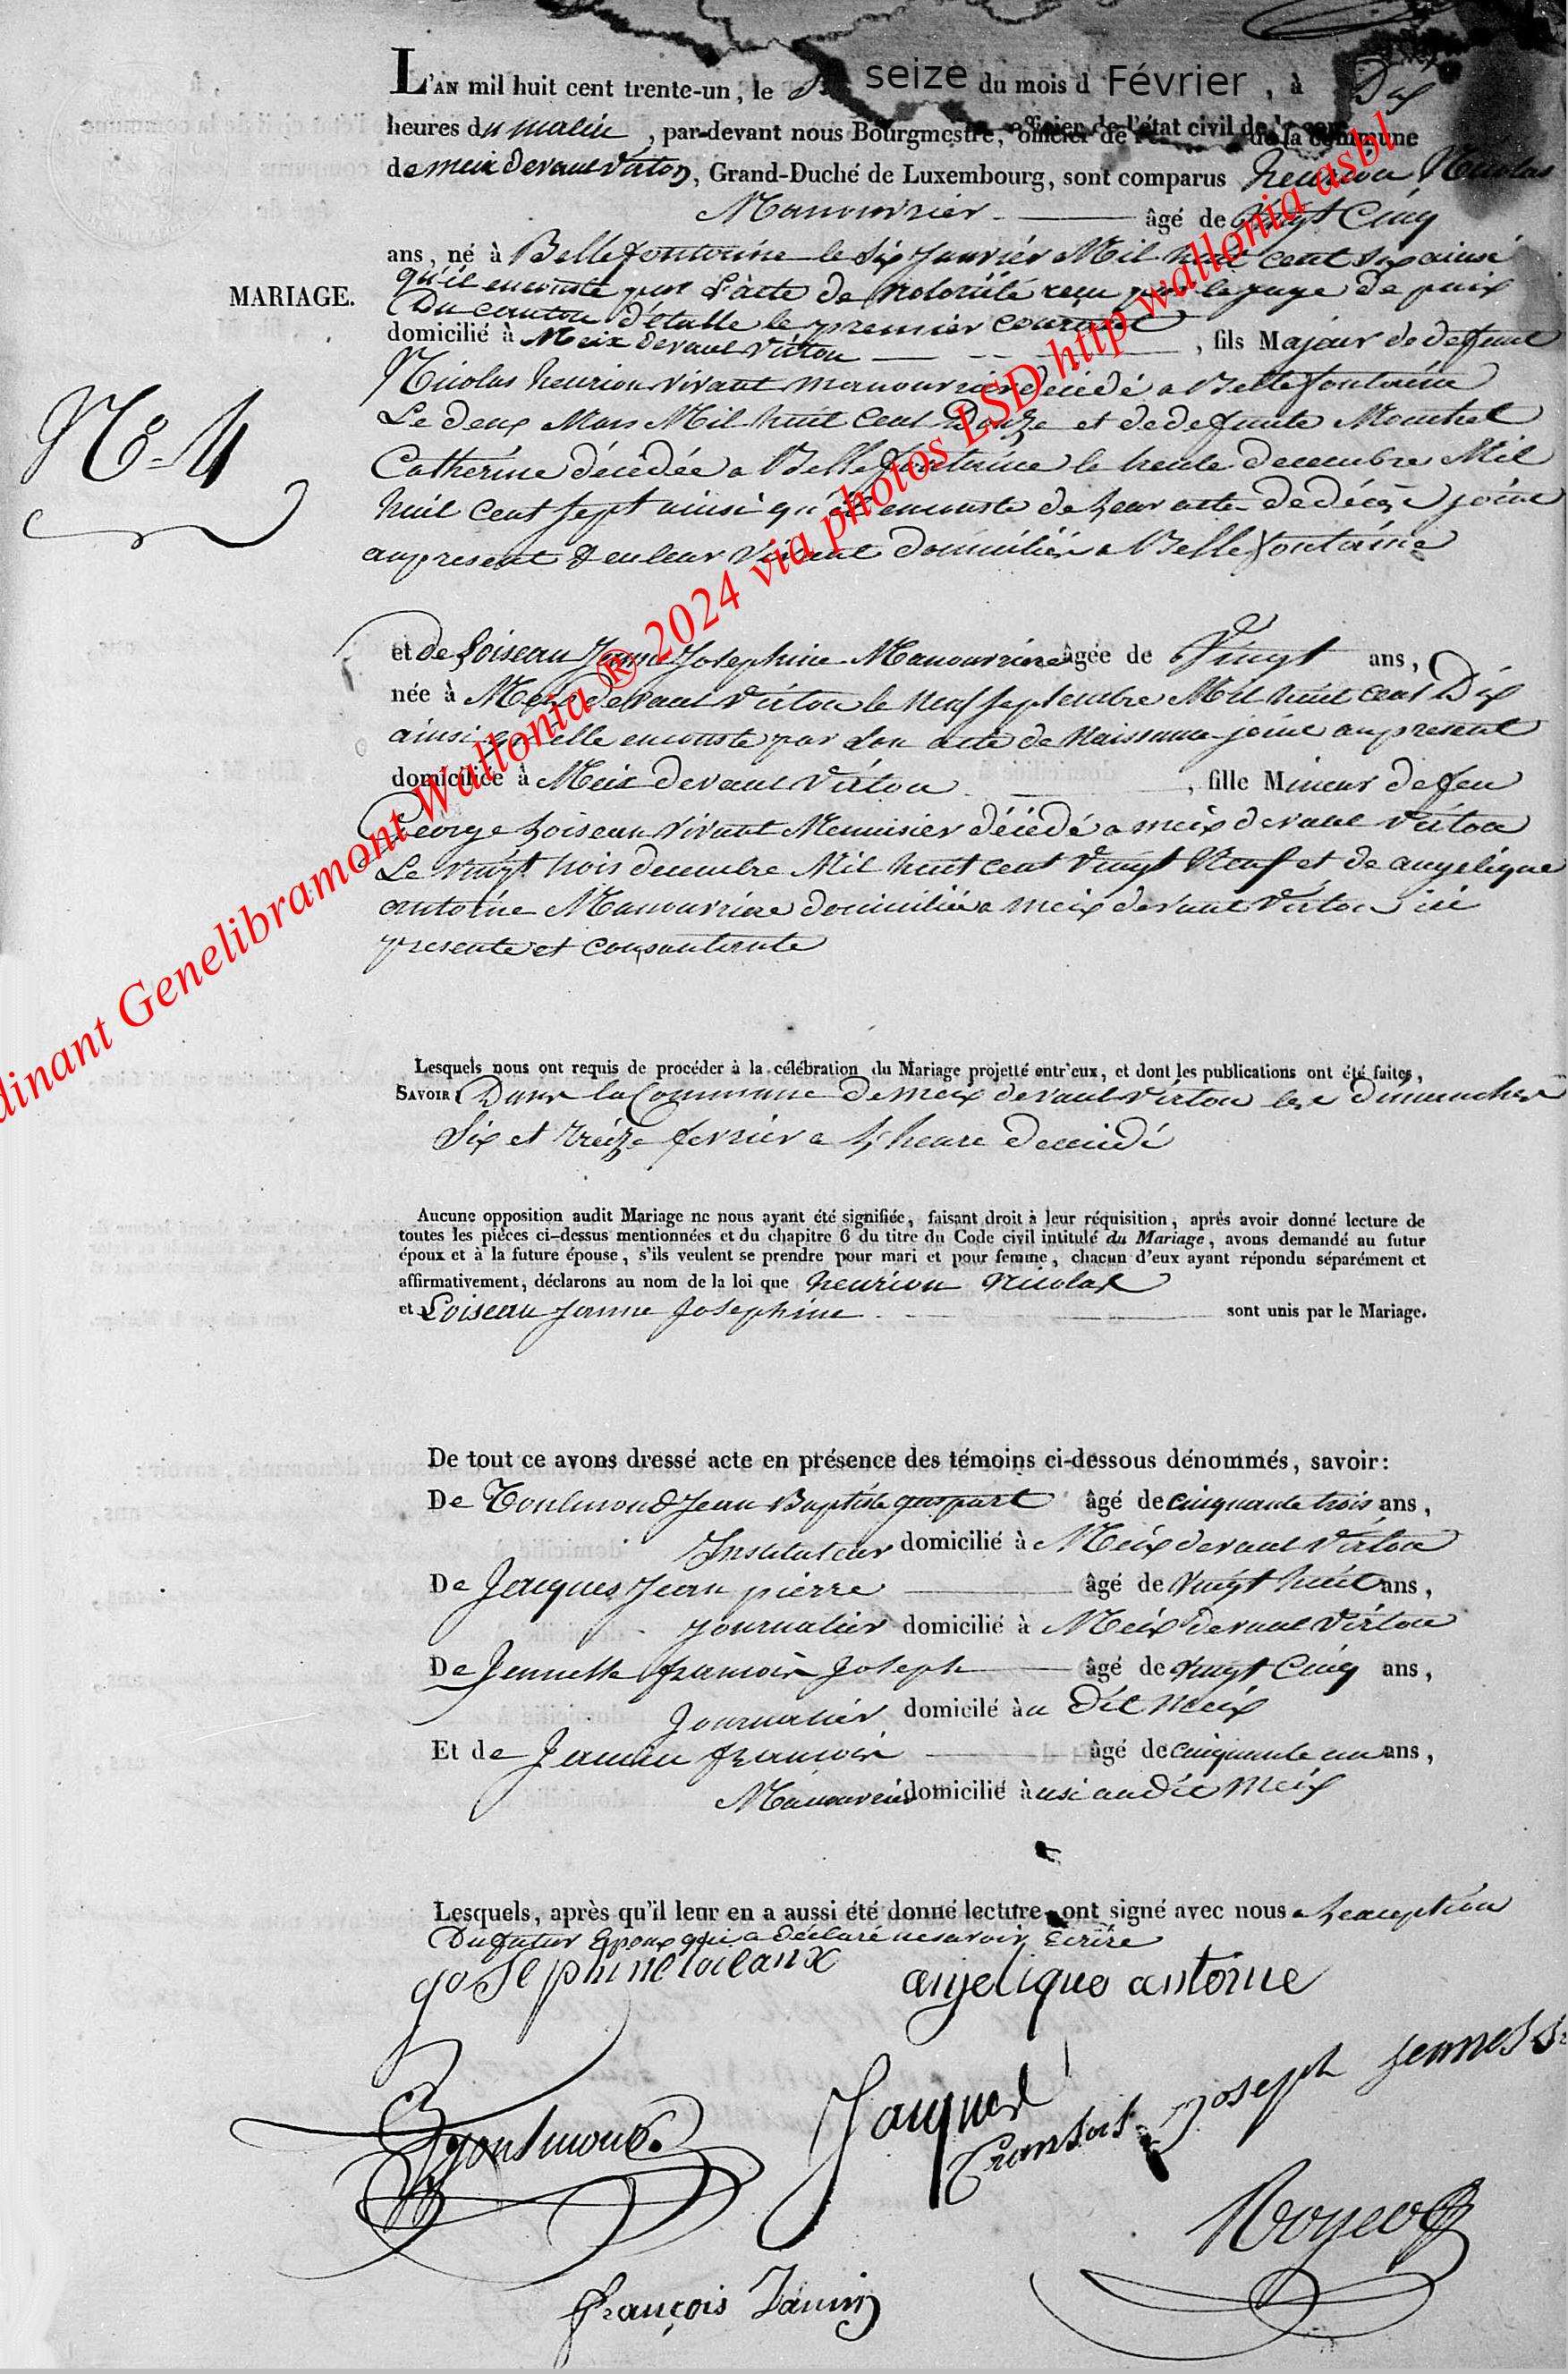 L'AN mil huit cent trente-un, le seize du mois d Février, à Dix
heures du matin, par-devant nous Bourgmestre, officier de l'état civil de la commune
de meix devant Virton, Grand-Duché de Luxembourg, sont comparus henrion Nicolas
Manouvrier âgé de Vingt Cinq
ans, né à Bellefontaine le Six Janvier Mil huit cent Six ainsi
qu'il enconste par L'acte de Notoriité reçu par le juge de paix
MARIAGE.
Du canton d'étalle le premier courant
domicilié à Meix devant Virton, fils Majeur de defunt
Nicolas henrion vivant manouvrier décédé a Bellefontaine
N° 4
Le deux Mars Mil huit Cent Douze et de defunte Mouchet
Catherine décédée a Bellefontaine le trente decembre Mil
huit Cent Sept ainsi qu'il enconste de Leur acte de décès joint
au present & en leur Vivant domiciliés a Bellefontaine
et de Loiseau Jeanne Josephine Manouvriere âgée de Vingt ans,
née à Meix devant Virton le Neuf Septembre Mil huit cent Dix
ainsi qu'elle enconste par Son acte de Naissance joint au present
domiciliée à Meix devant Virton, fille Mineur de feu
George Loiseau Vivant Menuisier décédé a meix devant Virton
Le Vingt trois decembre Mil huit cent Vingt Neuf et de angelique
antoine Manouvriere domiciliée a meix devant Virton ici
presente et consantante
Lesquels nous ont requis de procéder à la célébration du Mariage projetté entr'eux, et dont les publications ont été faites,
SAVOIR Dans la Commune de meix devant Virton les dimanches
Six et treize fevrier a heure de midi
Aucune opposition audit Mariage ne nous ayant été signifiée, faisant droit à leur réquisition, après avoir donné lecture de
toutes les pièces ci-dessus mentionnées et du chapitre 6 du titre du Code civil intitulé du Mariage, avons demandé au futur
époux et à la future épouse, s'ils veulent se prendre pour mari et pour femme, chacun d'eux ayant répondu séparément et
affirmativement, déclarons au nom de la loi que henrion Nicolas
et Loiseau Jeanne Josephine sont unis par le Mariage.
De tout ce avons dressé acte en présence des témoins ci-dessous dénommés, savoir:
De Toulmond Jean Baptiste gaspart âgé de cinquante trois ans,
Instituteur domicilié à Meix devant Virton
De Jacques Jean pierre âgé de Vingt huit ans,
journalier domicilié à Meix devant Virton
De Jennesse françois Joseph âgé de vingt Cinq ans,
Journalier domicilé àu Dit Meix
Et de Jamin françois âgé de cinquante un ans,
Manouvrier domicilié àusi au dit Meix
Lesquels, après qu'il leur en a aussi été donné lecture, ont signé avec nous a Lexception
Du futur Epoux qui a déclaré ne savoir Ecrire
josephine loieaux angelique antoine
Toulmond Jacques françois joseph jennesse
françois Jamin
dinant Genelibramont Wallonia ® 2024 via photos LSD http wallonia asbl